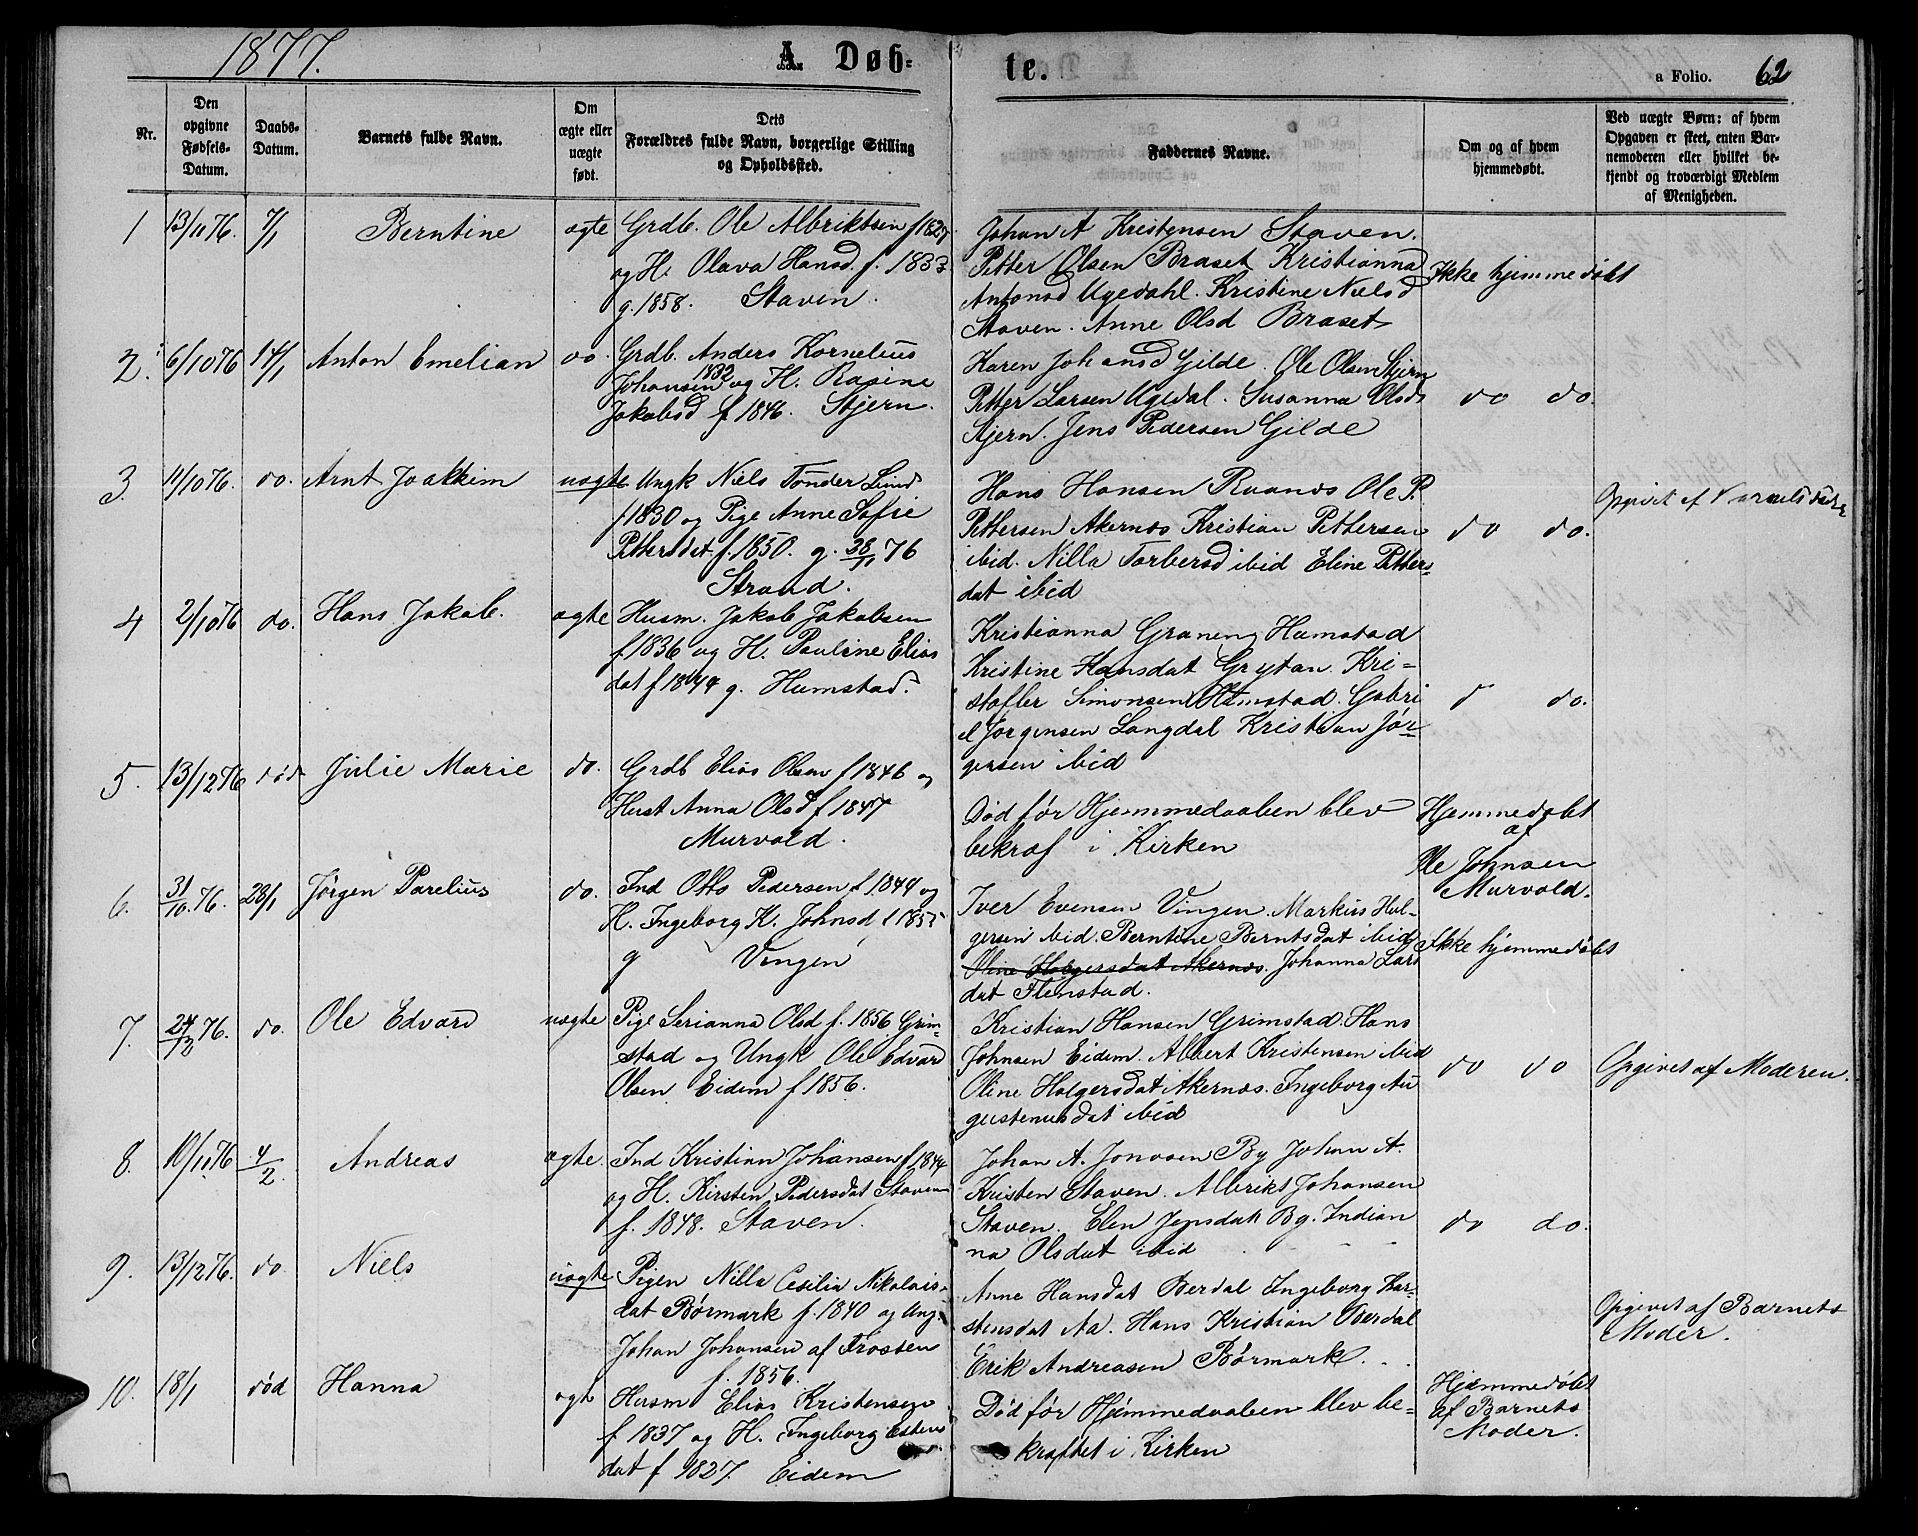 1877.
A. Døb-
te.
a Folio. 62
Nr.
Den opgivne Fødsels-Datum.
Daabs-Datum.
Barnets fulde Navn.
Om ægte eller uægte født.
Dets
Forældres fulde Navn, borgerlige Stilling
og Opholdssted.
Faddernes Navne.
Om og af hvem
hjemmedøbt.
Ved uægte Børn: af hvem
Opgaven er skeet, enten Bar-
nemoderen eller hvilket be-
kjendt og troværdigt Medlem
af Menigheden.
1 13/11 76. 7/1 Berntine ægte Grdb. Ole Albriktsen f 1827
og H. Olava Hansd. f. 1833
g. 1858. Staven.
Johan A Kristensen Staven.
Petter Olsen Braset Kristianna
Antonsd Ugedahl. Kristine Nielsd
Staven. Anne Olsd Braset
Ikke hjemmedøbt
2. 6/10 76 14/1 Anton Emelian do. Grdb. Anders Kornelius
Johansen 1832 og H. Rasine
Jakobsd f 1846. Stjern.
Karen Johansd Gilde. Ole Olsen Stjern
Petter Larsen Ugedal. Susanna Olsd
Stjern. Jens Pedersen Gilde
do do.
3. 11/10 76. do. Arnt Joakkim uægte Ungk Niels Tønder Lund
f 1830 og Pige Anne Sofie
Pettersdat f. 1850. g. 28/11 76
Strand.
Hans Hansen Raanes Ole P.
Pettersen Akernes Kristian Pettersen
ibid. Nilla Torbersd ibid Eline Petters-
dat ibid
do do.
Opgivet af Barnets Fader
4 2/10 76 do. Hans Jakob. ægte Husm. Jakob Jakobsen
f 1836 og H. Pauline Elias
dat f 1844 g. Humstad.
Kristianna Graneng Humstad
Kristine Hansdat Grytan. Kri-
stofler Simonsen Humstad. Gabri
el Jørgensen Langdal Kristian Jør-
gensen ibid
d do.
5. 13/12 76 død Julie Marie do. Grdb Elias Olsen f 1846 og
Hust Anna Olsd f 1847
Murvold.
Død før Hjemmedaaben blev
bekraf i Kirken
Hjemmedøbt
af
Ole Johnsen
Murvold.
6. 31/10. 76. 28/1 Jørgen Parelius do. Ind Otto Pedersen f. 1844 og
H. Ingeborg K. Johnsd f 185
g Vingen
Iver Evensen Vingen. Markus Hol-
gersen ibid. Berntine Berntsdat ibid
Oline Holgersdat Akernes. Johanna Lars
dat Flenstad.
Ikke hjemmedøbt
7. 24/12 76. do. Ole Edvard uægte Pige Serianna Olsd f. 1856 Grim-
stad og Ungk Ole Edvard
Olsen Eidem f 1856.
Kristian Hansen Grimstad. Hans
Johnsen Eidem. Albert Kristensen ibid
Oline Holgersdat Akernes. Ingeborg Au
gustenusdat ibid
do do
Opgivet af Moderen.
8. 10/11 76 4/2. Andreas ægte. Ind Kristian Johansen f 1844
og H. Kirsten Pedersdat Staven
f. 1848. Staven.
Johan A. Jonssen By Johan A.
Kristen Staven. Albrikt Johansen
Staven. Elen Jensdat By. Indian
na Olsdat ibid
do do.
9. 13/12 76. do Niels uægte Pigen Nilla Cesilia Nikolais-
dat Børmark f. 1840 og Ung.
Johan Johansen af Frosten
f. 1856.
Anne Hansdat Berdal Ingeborg Kar-
stensdat Aa. Hans Kristian Overdal
Erik Andreasen Børmark.
Opgivet af Barnets
Moder.
10. 18/1 død Hanna ægt Husm Elias Kristensen
f 1837 og H. Ingeborg Estens
dat f 1827. Eidem
Død før Hjemmedaaben blev be-
kræftet i Kirken
Hjemmedøbt
af Barnets
Moder.